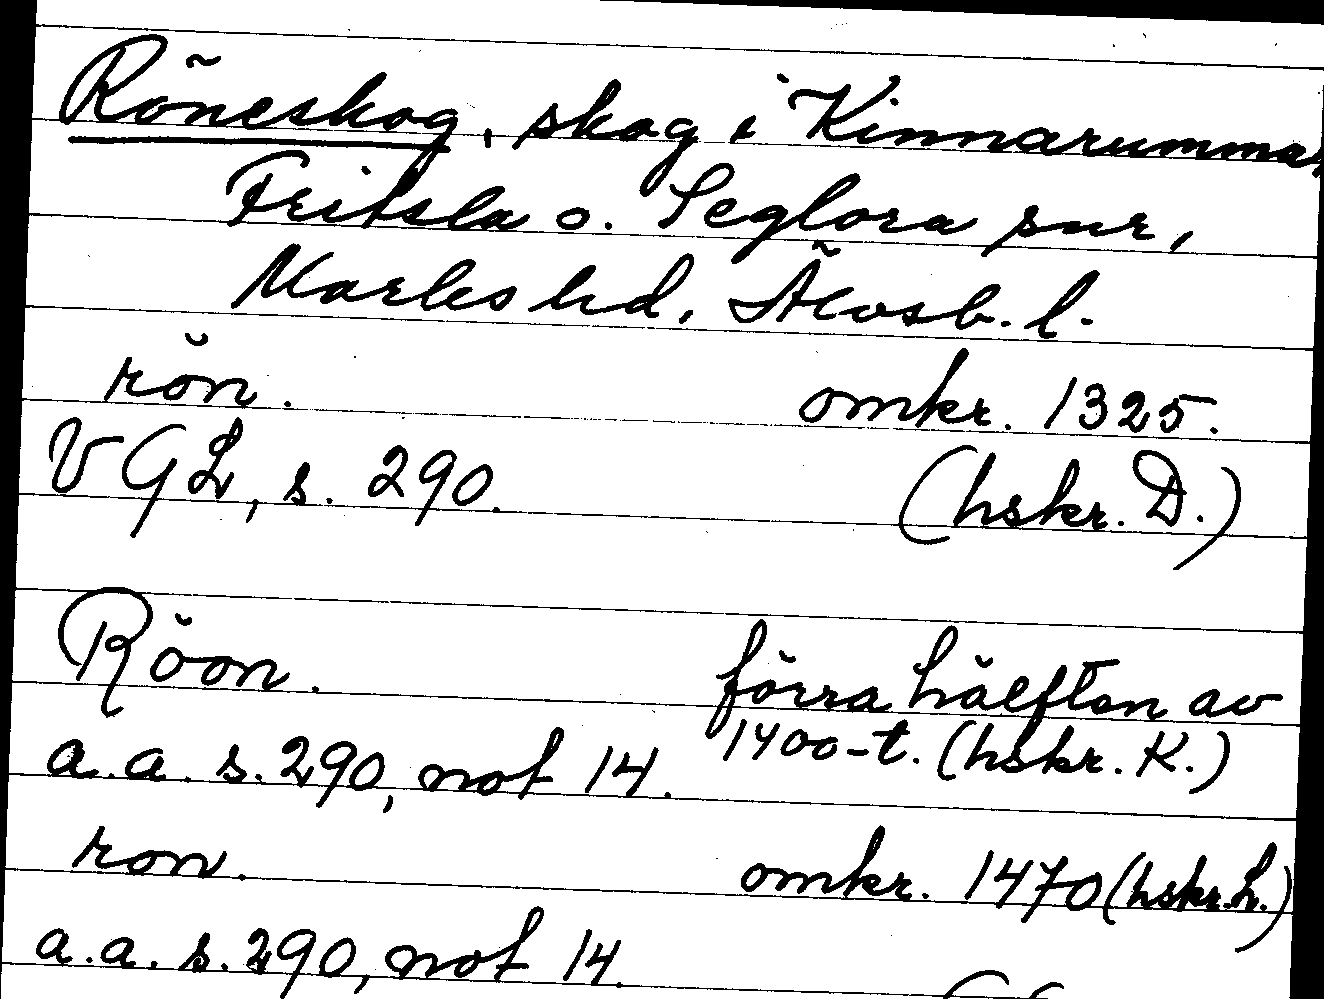 Röneskog, skog i Kinnarumma,
Fritsla o. Seglora snr,
Marks hd, Älvsb. l.
rön. omkr. 1325.
VGL, s. 290. (hskr. D.)
Röon. förra hälften av
1400-t. (hskr. K.)
a.a. s. 290, not 14.
ron. omkr. 1470 (hskr. L.)
a.a. s. 290, not 14.